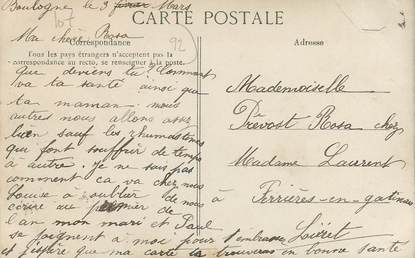 Boulogne le 3 Mars
107
92
CARTE POSTALE
Ma chère Rosa
Correspondance
Tous les pays étrangers n'acceptent pas la
correspondance au recto, se renseigner à la poste.
Que deviens tu Comment
va ta santé ainsi que
ta maman. nous
autres nous allons assez
bien sauf les rhumatismes
qui font souffrir de temps
à autre. Je ne sais pas
comment ca va chez nous
Louise à oublier de nous
écrire au premier de
l'an mon mari et Paul
se joignent à moi pour t'embrasser
et j'espère que ma carte ta trouveras en bonne santé
Adresse
Mademoiselle
Prevost Rosa chez
Madame Laurent
à Ferrières-en-gatinais
Loiret